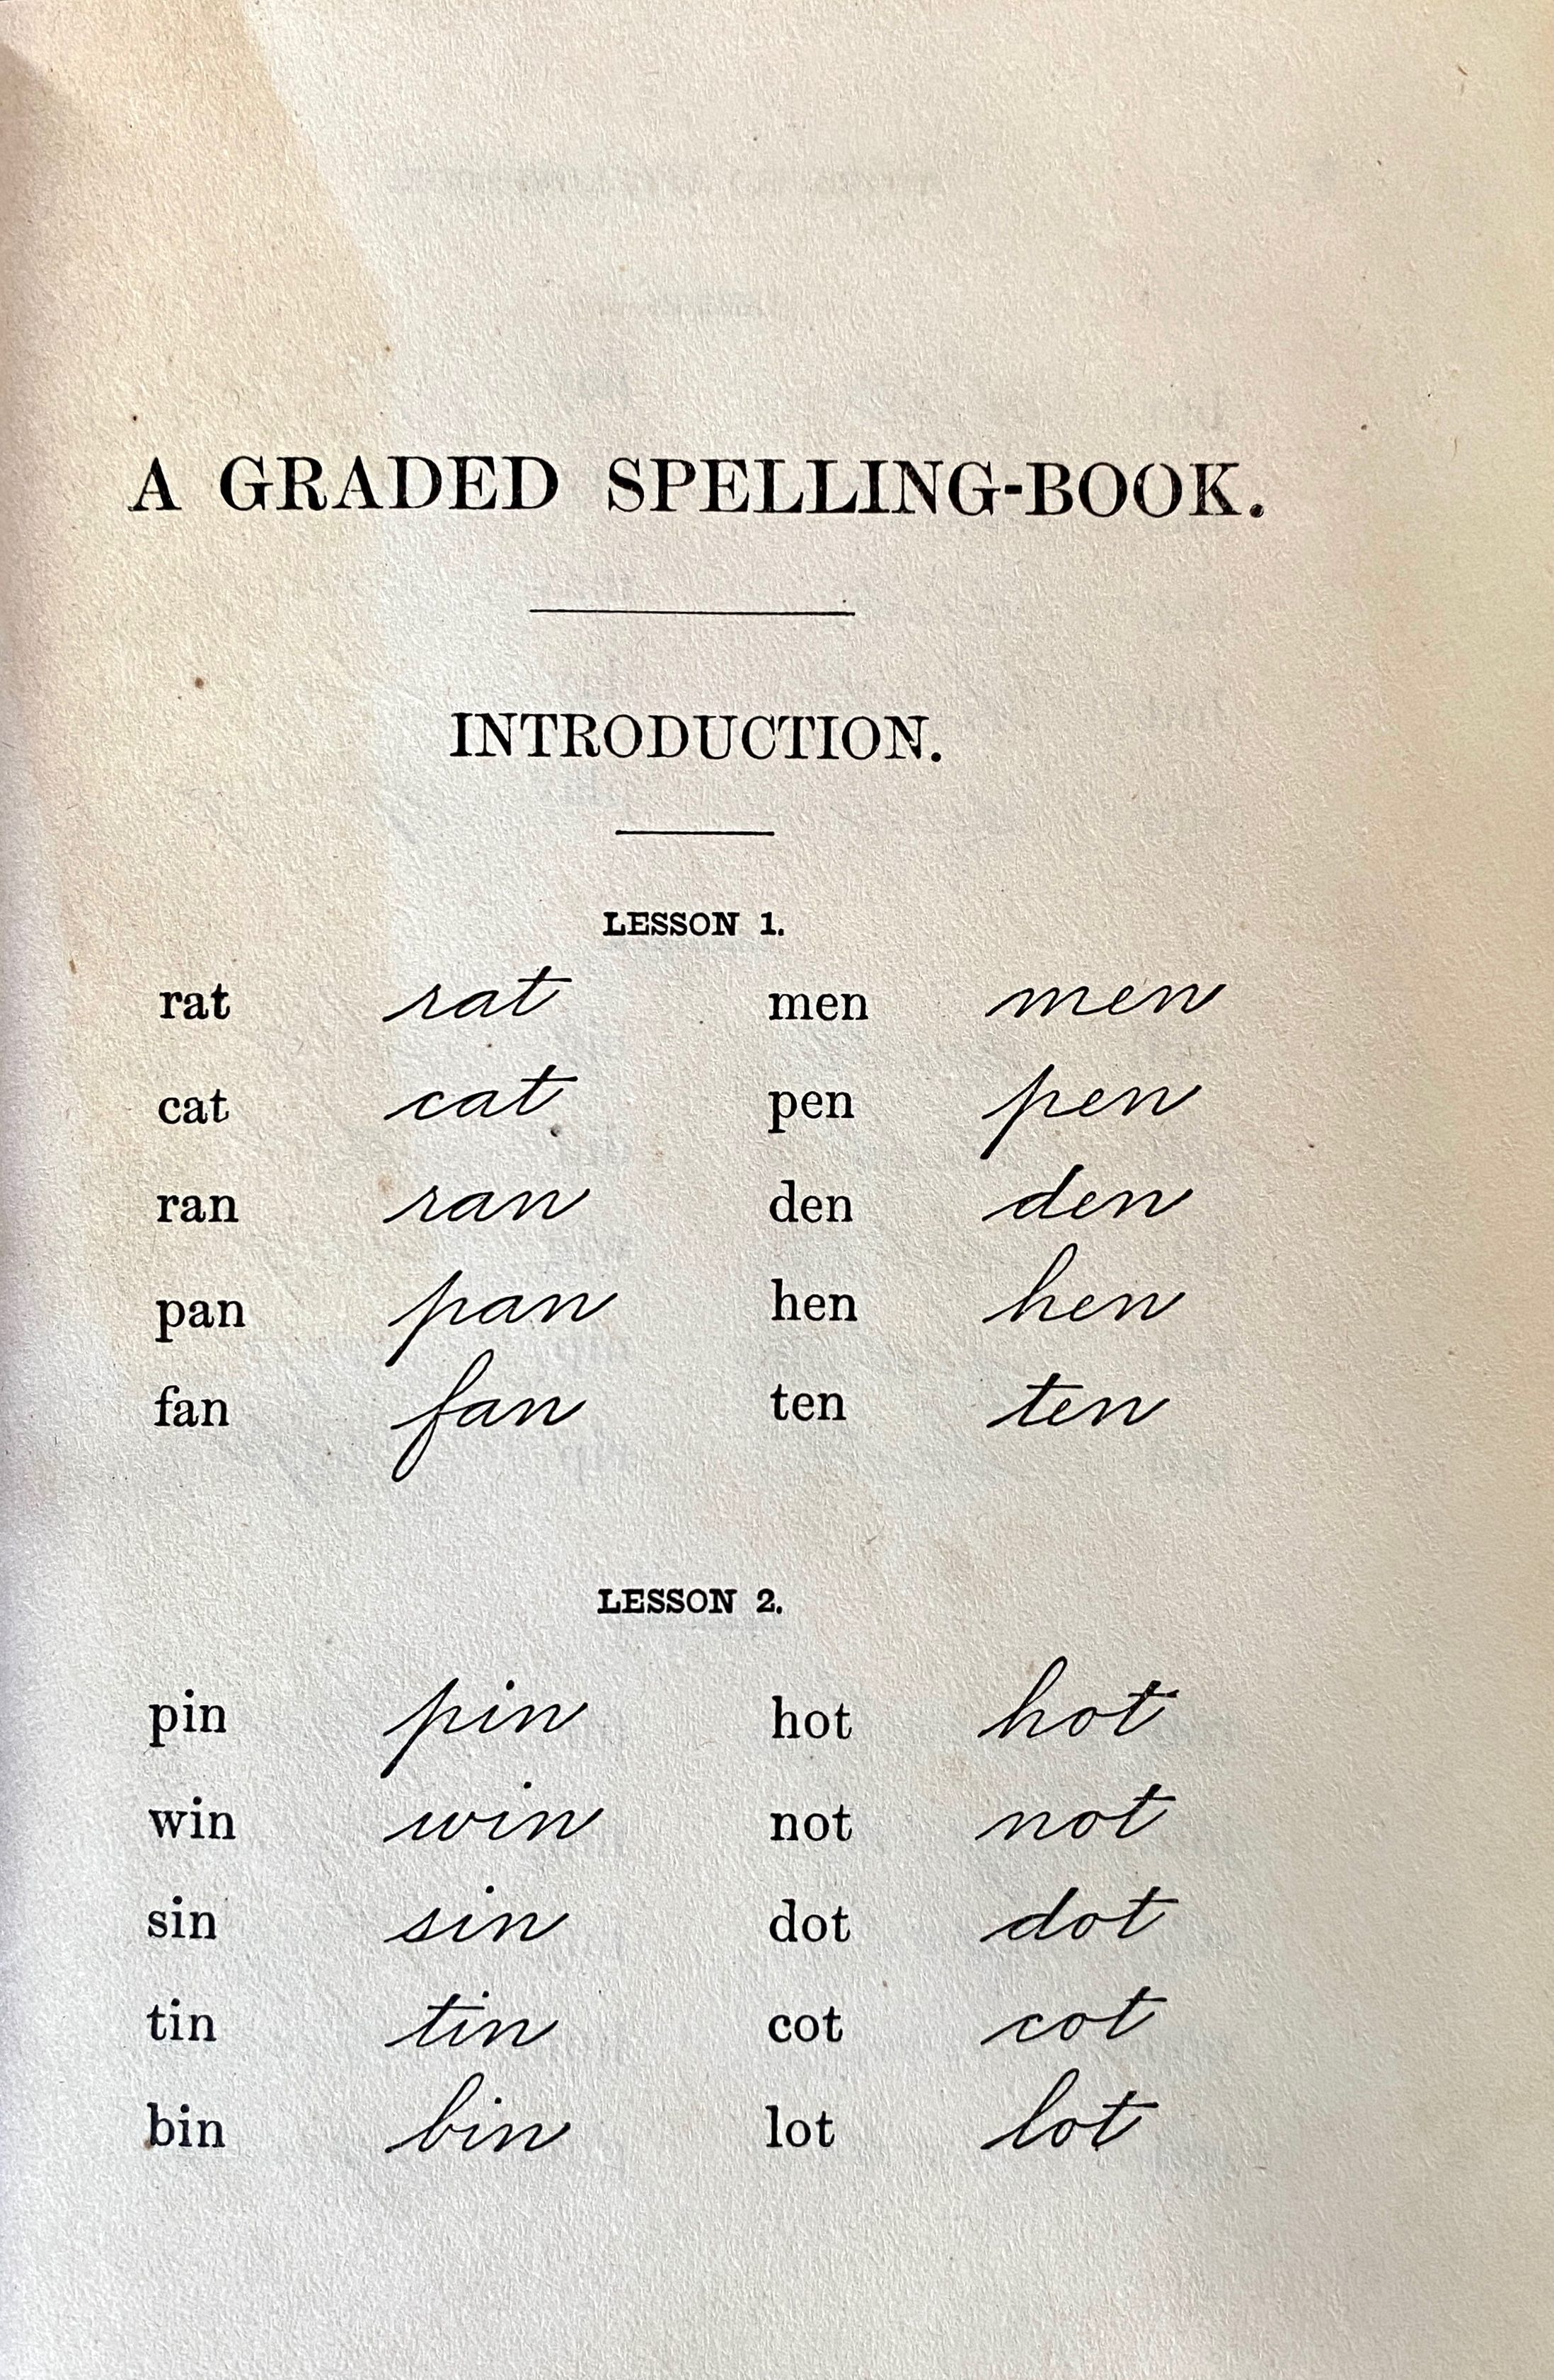 A GRADED SPELLING-BOOK.
INTRODUCTION.
LESSON 1.
rat rat men men
cat cat pen pen
ran ran den den
pan pan hen hen
fan fan ten ten
LESSON 2.
pin pin hot hot
win win not not
sin sin dot dot
tin tin cot cot
bin bin lot lot